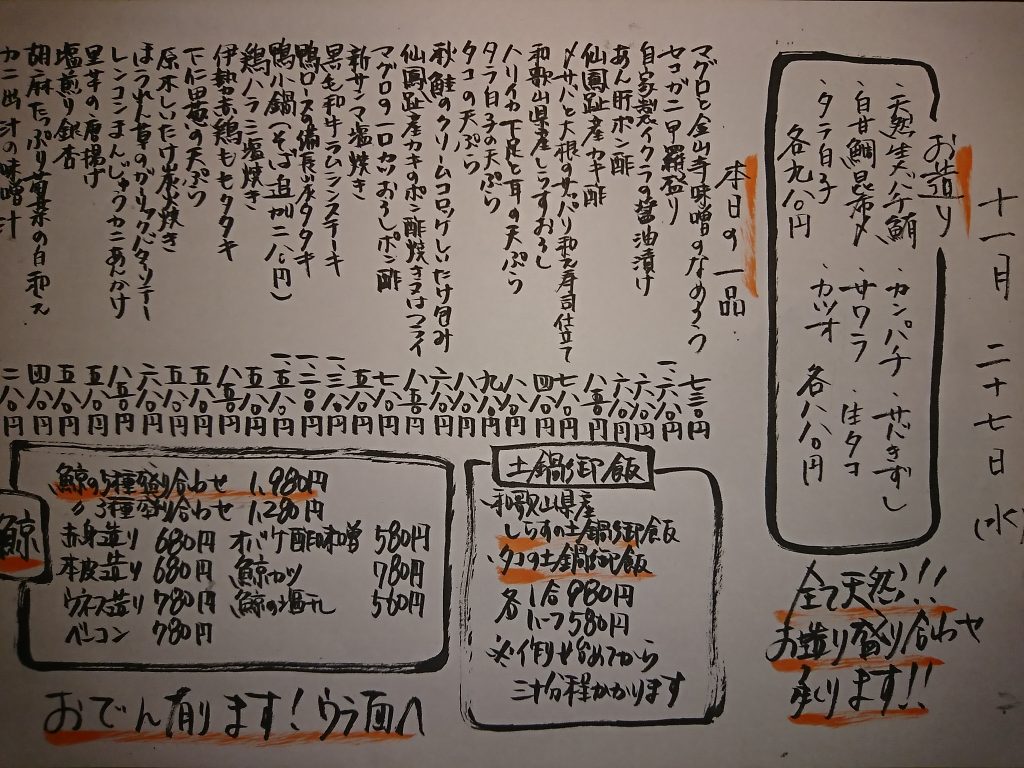 十一月二十七日(水)
お造り
・天然生バチ鮪 ・カンパチ ・サバきずし
・白甘鯛昆布〆 ・サワラ ・生タコ
・タラ白子 ・カツオ
各九八〇円 各八八〇円
全て天然!!!
お造り盛り合わせ
承ります!!
本日の一品
マグロと金山寺味噌のなめろう 七三〇円
セコガニ甲羅盛り 一、六八〇円
自家製イクラの醤油漬け 六八〇円
あん肝ポン酢 六八〇円
仙鳳趾産カキ酢 八五〇円
〆サバと大根のサッパリ和え寿司仕立て 七八〇円
和歌山県産しらすおろし 四八〇円
ハリイカ下足と耳の天ぷら 八八〇円
タラ白子の天ぷら 九八〇円
タコの天ぷら 八八〇円
秋鮭のクリームコロッケしいたけ包み 六八〇円
仙鳳趾産カキのポン酢焼き又はフライ 八五〇円
マグロの一口カツおろしポン酢 七八〇円
新サンマ塩焼き 八八〇円
黒毛和牛ラムシンステーキ 一、三八〇円
鴨ロースの備長炭タタキ 一、二〇〇円
鴨小鍋(そば追加二八〇円) 一、五八〇円
鶏ハラミ塩焼き 五八〇円
伊勢赤鶏ももタタキ 八五〇円
下仁田葱の天ぷら 五八〇円
原木しいたけ炭火焼き 五八〇円
ほうれん草のガーリックバターソテー 六八〇円
レンコンまんじゅうカニあんかけ 八五〇円
里芋の唐揚げ 五八〇円
塩煎り銀杏 五八〇円
胡麻たっぷり菊菜の白和え 四八〇円
カニ出汁の味噌汁 二八〇円
土鍋御飯
和歌山県産
しらすの土鍋御飯
タコの土鍋御飯
各 1合 980円
ハーフ 580円
※作り始めてから
三十分程かかります
鯨
鯨の5種盛り合わせ 1,980円
〃 3種盛り合わせ 1,280円
赤身造り 680円 オバケ酢味噌 580円
本皮造り 680円 鯨カツ 780円
ウネス造り 780円 鯨の塩干し 560円
ベーコン 780円
おでん有ります!ウラ面へ